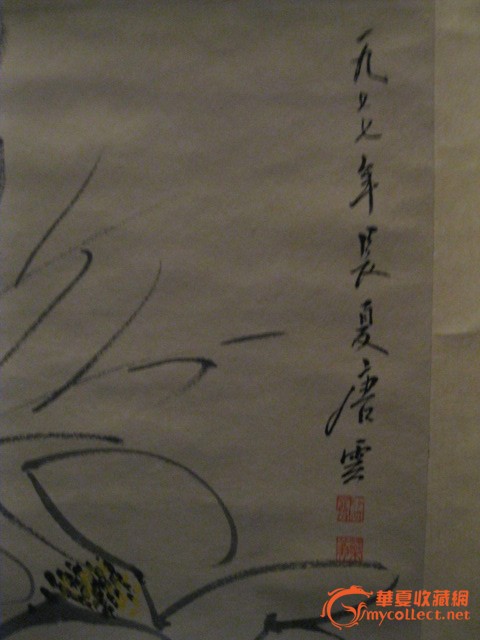 一九七七年長夏唐雲
華夏收藏網
mycollect.net